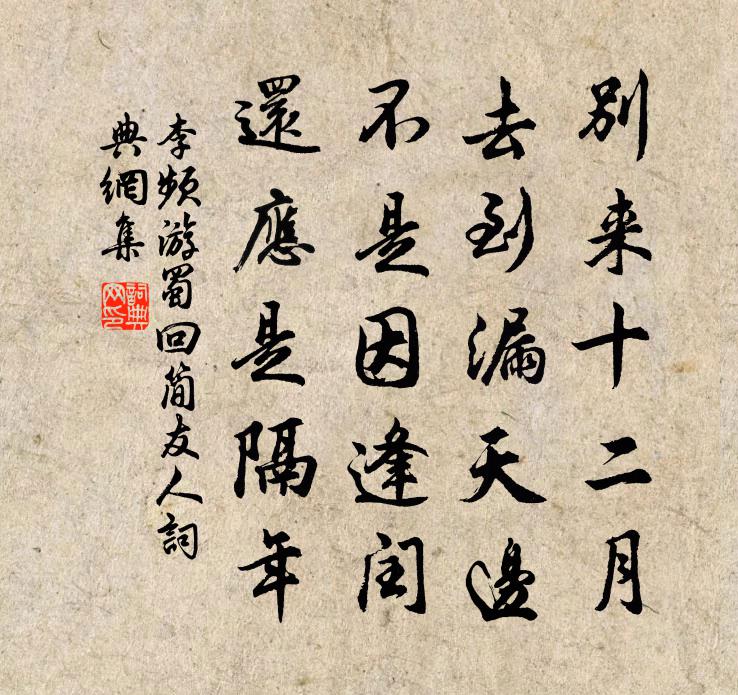 別来十二月
去到漏天邊
不是因逢閏
還應是隔年
李頻游蜀回簡友人詞
典網集
詞典
网印